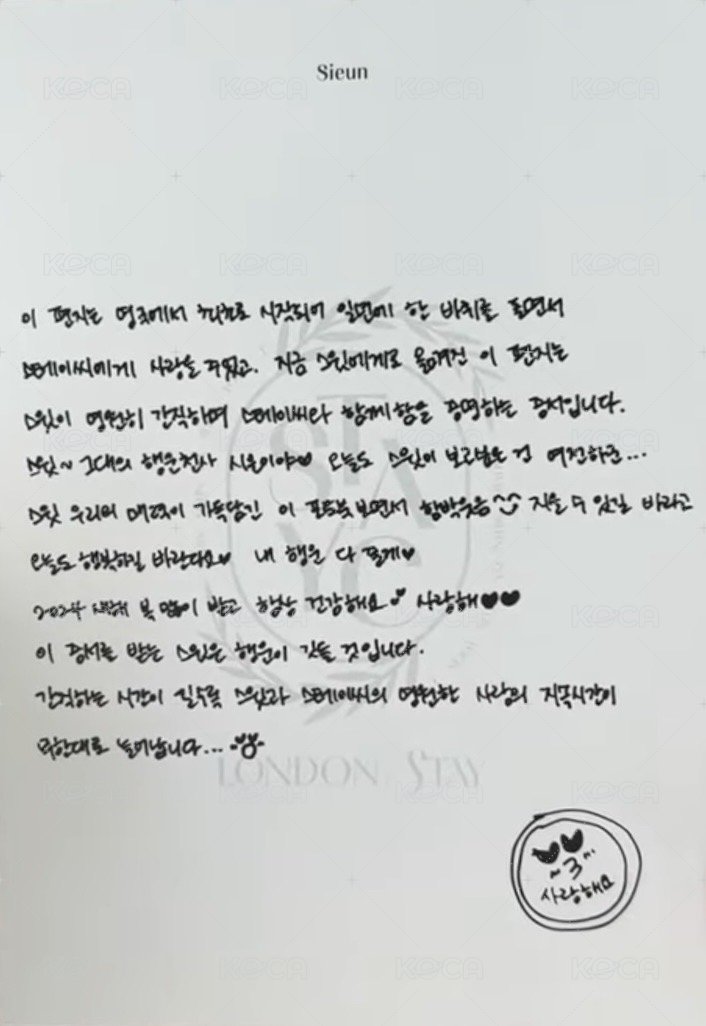 Sieun
이 편지는 영국에서 최초로 시작되어 일년에 한 바퀴를 돌면서
스테이씨에게 사랑을 주었고. 지금 스윗에게로 옮겨진 이 편지는
스윗이 영원히 간직하며 스테이씨와 함께함을 증명하는 증서입니다.
스윗~ 그대의 행운천사 시은이야♥ 오늘도 스윗이 보고싶은 건 여전하군...
스윗 우리의 매력이 가득담긴 이 포토북 보면서 함박웃음 지을 수 있길 바라고
오늘도 행복하길 바란다요♥ 내 행운 다 줄게♥
2024 새해 복 많이 받고 항상 건강해요 사랑해♥♥
이 증서를 받는 스윗은 행운이 깃들 것입니다.
간직하는 시간이 길수록 스윗과 스테이씨의 영원한 사랑의 지속시간이
무한대로 늘어납니다...
STAYC
LONDON, STAY
~3~
사랑해요
KOCA